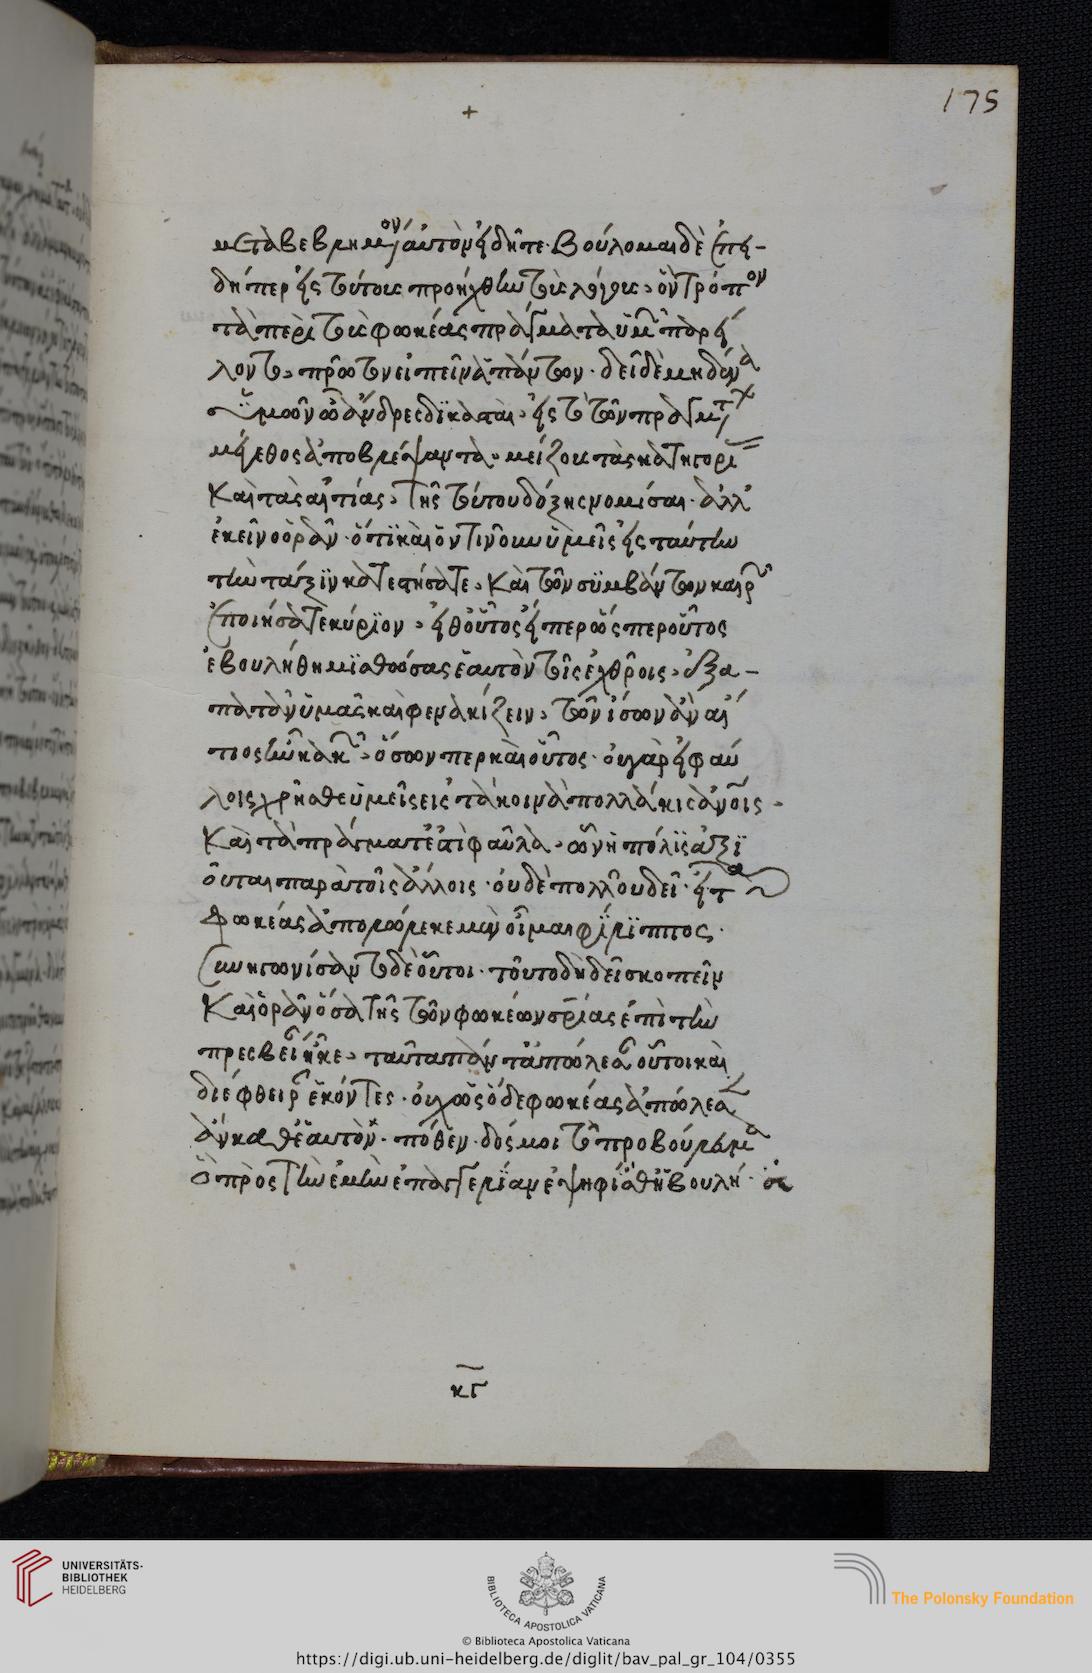 175
+
μεταβεβλημένον αὐτὸν εἴδητε. βούλομαι δὲ ἐπει-
δήπερ εἰς τούτους προήχθην τοὺς λόγους, ὃν τρόπον
τὰ περὶ τοὺς φωκέας πράγματα ὑμῶν παρεί
λοντο, πρῶτον εἰπεῖν ἁπάντων. δεῖ δὲ μηδένα
ὑμῶν ὦ ἄνδρες δικασταὶ, εἰς τὸ τῶν πραγμάτων
μέγεθος ἀποβλέψαντα, μείζους τὰς κατηγορίας
καὶ τὰς αἰτίας, τῆς τούτου δόξης νομίσαι. ἀλλ'
ἐκεῖνο ὁρᾶν. ὅτι καὶ ὅντιν' οὖν ὑμεῖς εἰς ταύτην
τὴν τάξιν κατεστήσατε, καὶ τῶν συμβάντων καιρῶν
ἐποιήσατε κύριον, εἶθ' οὗτος εἴπερ ὥσπερ οὗτος
ἐβουλήθη μισθώσας ἑαυτὸν τοῖς ἐχθροῖς, ἐξα-
πατᾶν ὑμᾶς καὶ φενακίζειν, τῶν ἴσων ἂν αἴ
τιος ἦν κακῶν, ὅσων περ καὶ οὗτος. οὐ γὰρ εἰ φαύ
λοις χρῆσθε ὑμεῖς εἰς τὰ κοινὰ πολλάκις ἀνθρώποις,
καὶ τὰ πράγματ' ἐστὶ φαῦλα, ὧν ἡ πόλις ἀξι
οῦται παρὰ τοῖς ἄλλοις. οὐδὲ πολλοῦ δεῖ. εἶτα
φωκέας ἀπολώλεκε μὲν οἶμαι φίλιππος.
συνηγωνίσαντο δὲ οὗτοι. τοῦτο δὴ δεῖ σκοπεῖν
καὶ ὁρᾶν ὅσα τῆς τῶν φωκέων σωτηρίας ἐπὶ τὴν
πρεσβείαν ἧκε, ταῦτα πάντα ἀπώλεσαν οὗτοι καὶ
διέφθειραν ἑκόντες. οὐχ ὡς ὅδε φωκέας ἀπώλεσεν
ἂν καθ' ἑαυτόν. πόθεν. δός μοι τὸ προβούλευμα
ὃ πρὸς τὴν ἐμὴν ἐπαγγελίαν ἐψηφίσαθ' ἡ βουλή. καὶ
κγ
UNIVERSITÄTS-
BIBLIOTHEK
HEIDELBERG
BIBLIOTECA APOSTOLICA VATICANA
The Polonsky Foundation
© Biblioteca Apostolica Vaticana
https://digi.ub.uni-heidelberg.de/diglit/bav_pal_gr_104/0355